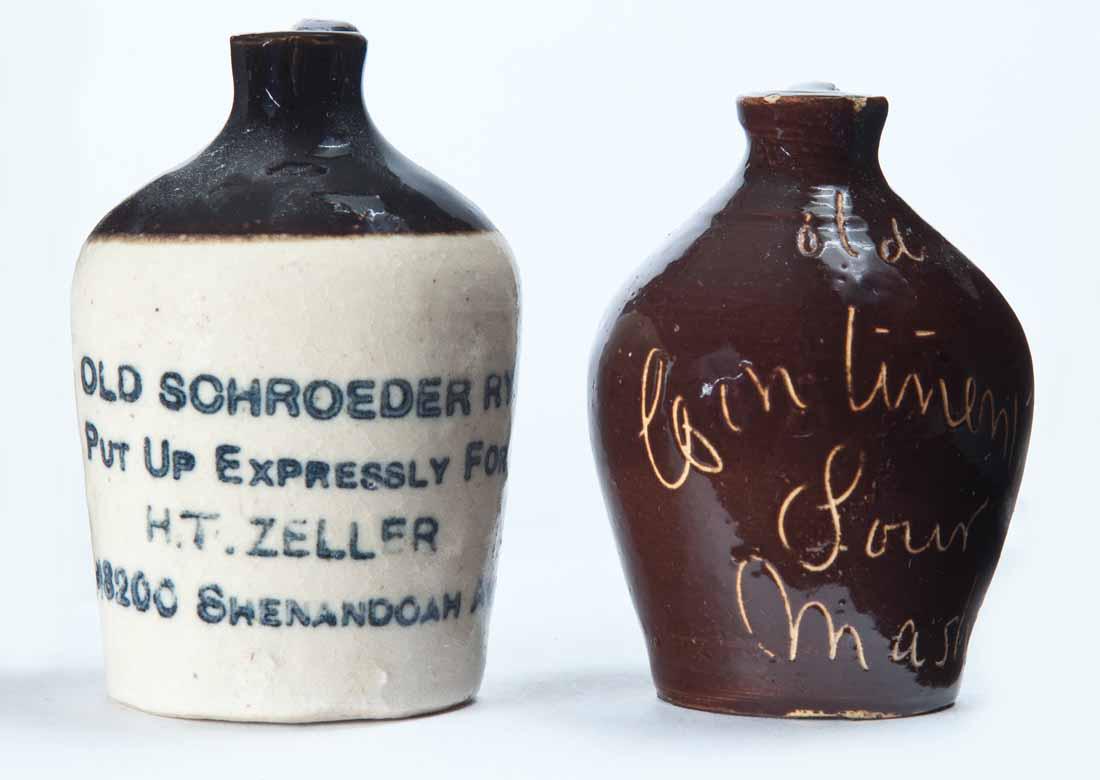 OLD SCHROEDER RY
PUT UP EXPRESSLY FOR
H.T. ZELLER
18200 SHENANDOAH A
old
Continen
Sour
Mash